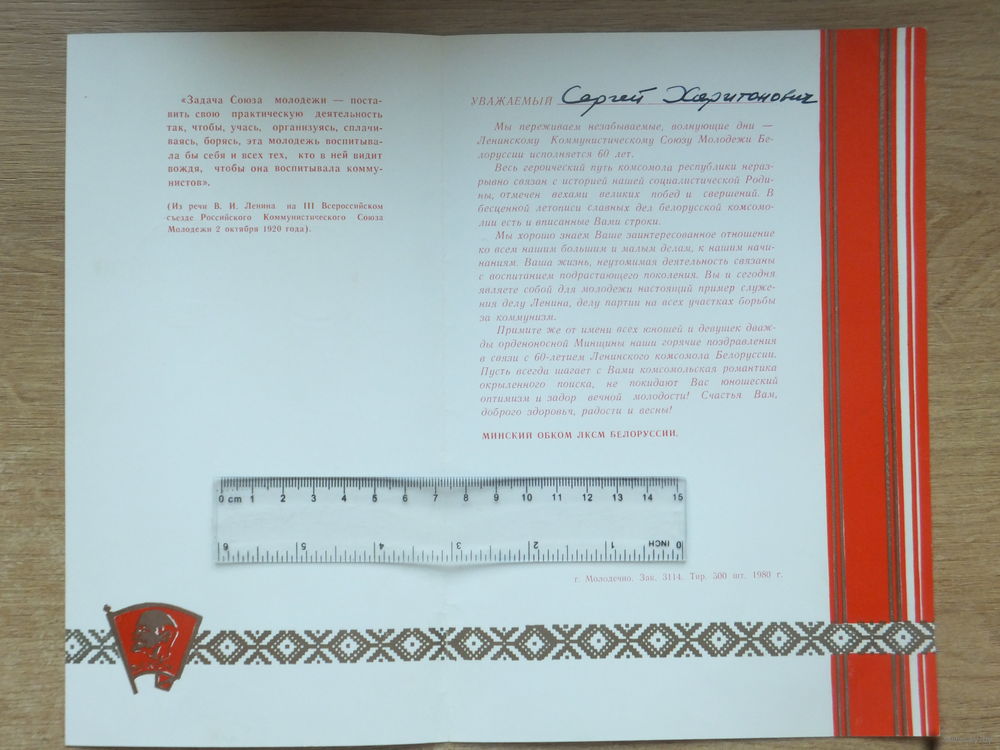 «Задача Союза молодежи — поста-
вить свою практическую деятельность
так, чтобы, учась, организуясь, сплачи-
ваясь, борясь, эта молодежь воспитыва-
ла бы себя и всех тех, кто в ней видит
вождя, чтобы она воспитывала комму-
нистов».
(Из речи В. И. Ленина на III Всероссийском
съезде Российского Коммунистического Союза
Молодежи 2 октября 1920 года).
УВАЖАЕМЫЙ Сергей Харитонович
Мы переживаем незабываемые, волнующие дни —
Ленинскому Коммунистическому Союзу Молодежи Бе-
лоруссии исполняется 60 лет.
Весь героический путь комсомола республики нераз-
рывно связан с историей нашей социалистической Роди-
ны, отмечен вехами великих побед и свершений. В
бесценной летописи славных дел белорусской комсомо-
лии есть и вписанные Вами строки.
Мы хорошо знаем Ваше заинтересованное отношение
ко всем нашим большим и малым делам, к нашим начи-
наниям. Ваша жизнь, неутомимая деятельность связаны
с воспитанием подрастающего поколения. Вы и сегодня
являете собой для молодежи настоящий пример служе-
ния делу Ленина, делу партии на всех участках борьбы
за коммунизм.
Примите же от имени всех юношей и девушек дваж-
ды орденоносной Минщины наши горячие поздравления
в связи с 60-летием Ленинского комсомола Белоруссии.
Пусть всегда шагает с Вами комсомольская романтика
окрыленного поиска, не покидают Вас юношеский
оптимизм и задор вечной молодости! Счастья Вам,
доброго здоровья, радости и весны!
МИНСКИЙ ОБКОМ ЛКСМ БЕЛОРУССИИ.
0 cm 1 2 3 4 5 6 7 8 9 10 11 12 13 14 15
6 5 4 3 2 1 INCH 0
г. Молодечно. Зак. 3114. Тир. 500 шт. 1980 г.